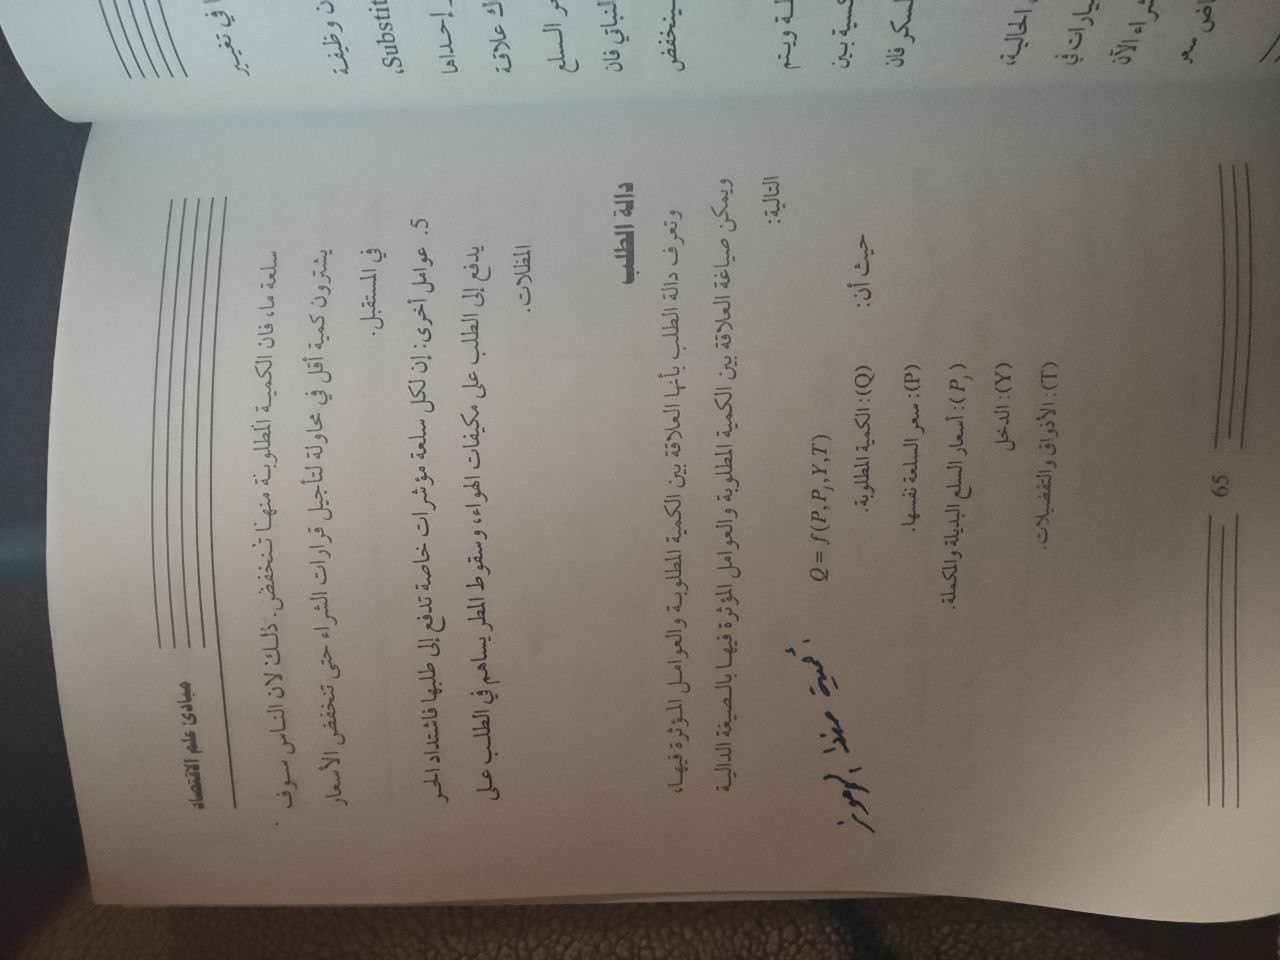 مبادئ علم الاقتصاد
سلعة ما، فان الكمية المطلوبة منها تنخفض. ذلك لان الناس سوف
يشترون كمية أقل في محاولة لتأجيل قرارات الشراء حتى تنخفض الأسعار
في المستقبل.
5. عوامل أخرى: إن لكل سلعة مؤشرات خاصة تدفع إلى طلبها فاشتداد الحر
يدفع إلى الطلب على مكيفات الهواء، وسقوط المطر يساهم في الطلب على
المظلات.
دالة الطلب
وتعرف دالة الطلب بأنها العلاقة بين الكمية المطلوبة والعوامل المؤثرة فيها،
ويمكن صياغة العلاقة بين الكمية المطلوبة والعوامل المؤثرة فيها بالصيغة الدالية
التالية:
Q = f(P, Pj, Y, T)
حيث أن:
(Q): الكمية المطلوبة.
(P): سعر السلعة نفسها.
(Pj): أسعار السلع البديلة والمكملة.
(Y): الدخل
(T): الأذواق والتفضيلات.
الرموز
65
ا في تغيير
ن وظيفة
Substit،
إحداها
ك علاقة
السلع
لنباتي فان
سينخفض
ويتم
بين
لسكر فان
الحالية،
يارات في
شراء الآن
سعر